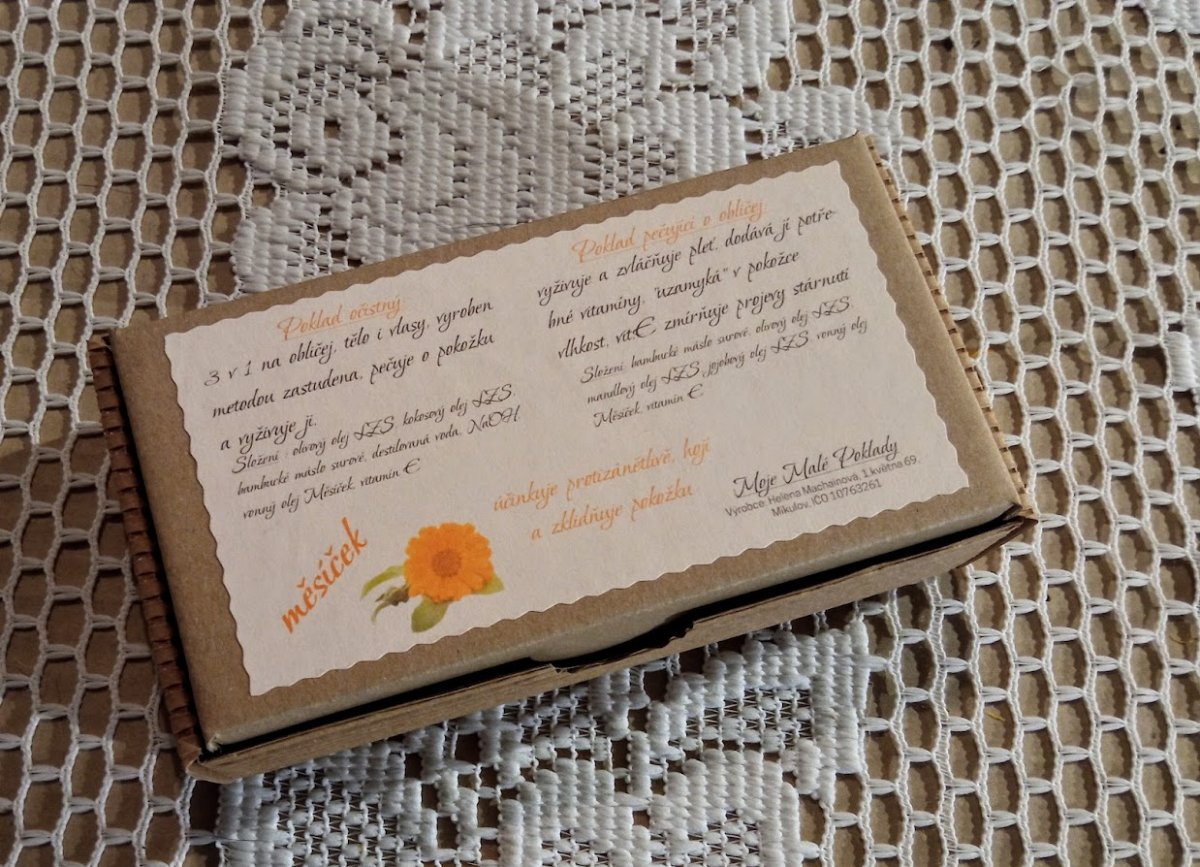 Poklad očistný:
3 v 1 na obličej, tělo i vlasy, vyroben
metodou zastudena, pečuje o pokožku
a vyživuje ji.
Složení : olivový olej LZS, kokosový olej LZS,
bambucké máslo surové, destilovaná voda, NaOH,
vonný olej Měsíček, vitamín E
Poklad pečující o obličej:
vyživuje a zvláčňuje pleť, dodává jí potře-
bné vitamíny, "uzamyká" v pokožce
vlhkost, vit.E zmírňuje projevy stárnutí
Složení: bambucké máslo surové, olivový olej LZS,
mandlový olej LZS, jojobový olej LZS, vonný olej
Měsíček, vitamín E
účinkuje protizánětlivě, hojí
a zklidňuje pokožku
měsíček
Moje Malé Poklady
Výrobce: Helena Machainová, 1.května 69,
Mikulov, IČO 10763261